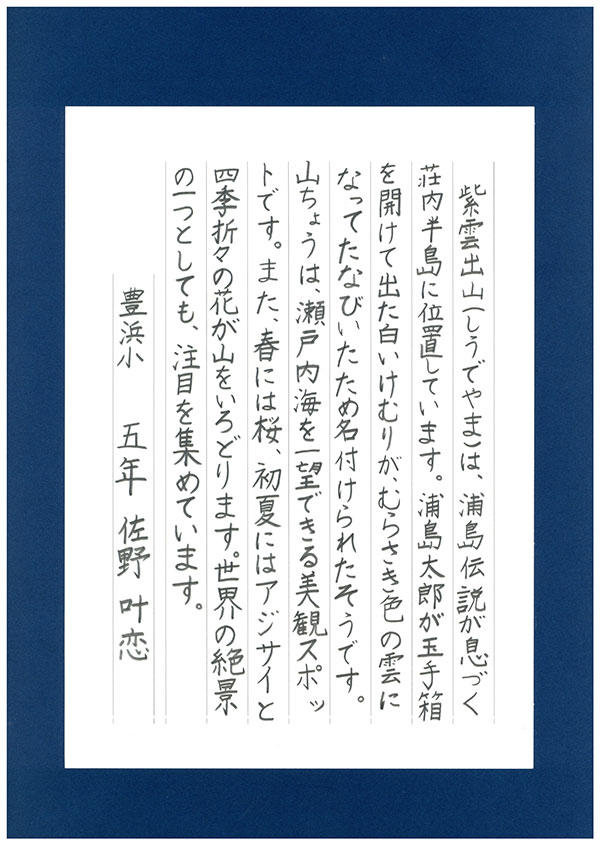 紫雲出山(しうでやま)は、浦島伝説が息づく
荘内半島に位置しています。浦島太郎が玉手箱
を開けて出た白いけむりが、むらさき色の雲に
なってたなびいたため名付けられたそうです。
山ちょうは、瀬戸内海を一望できる美観スポッ
トです。また、春には桜、初夏にはアジサイと
四季折々の花が山をいろどります。世界の絶景
の一つとしても、注目を集めています。
豊浜小 五年 佐野叶恋